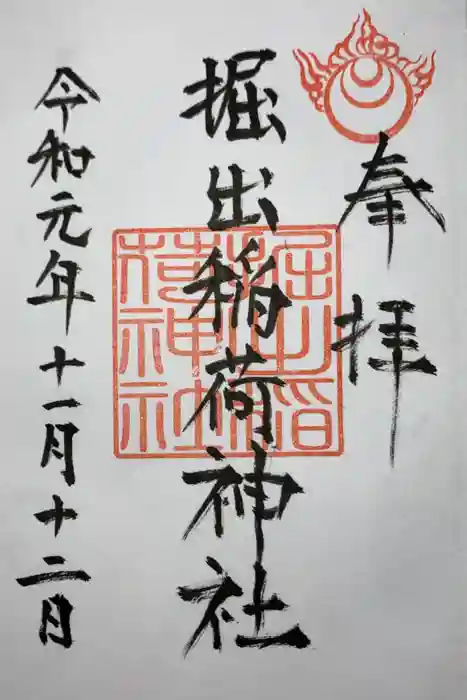 奉拝
掘出稲荷神社
掘出稲荷神社
令和元年十一月十二月